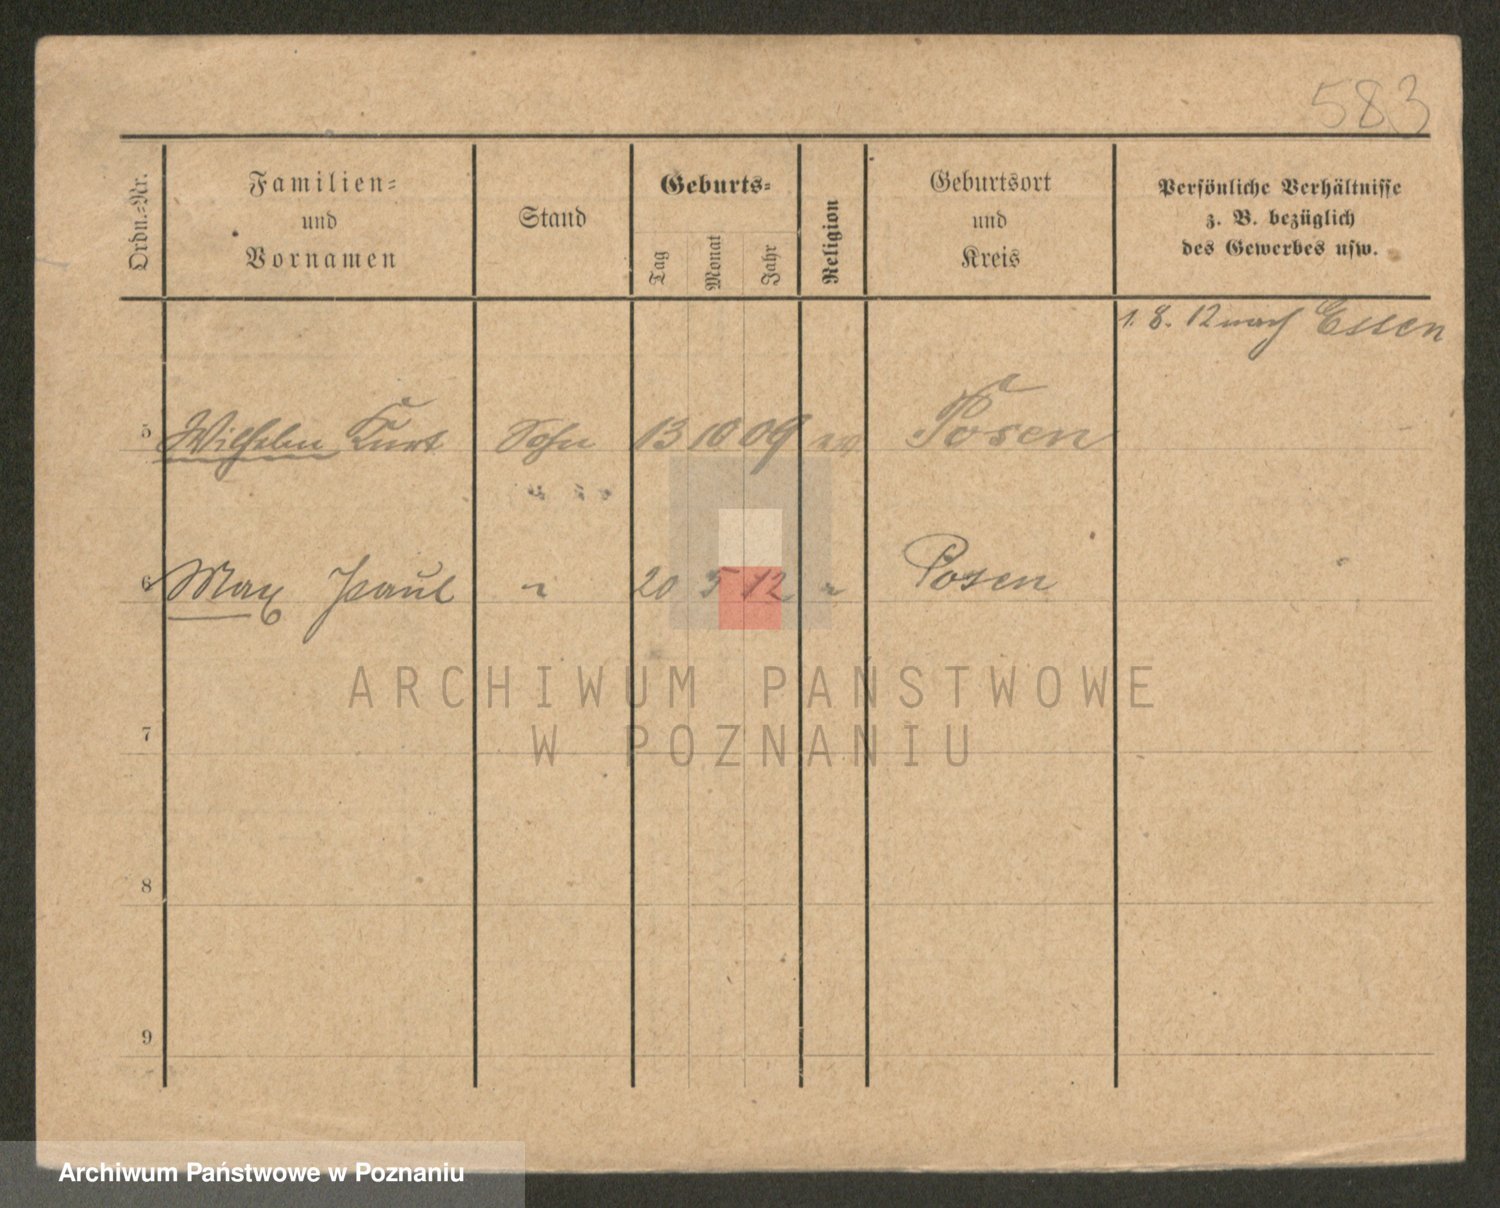 583
Ordn.-Nr.
Familien-
und
Vornamen
Stand
Geburts-
Tag
Monat
Jahr
Religion
Geburtsort
und
Kreis
Persönliche Verhältnisse
z. B. bezüglich
des Gewerbes usw.
1. 8. 12 nach Essen
5 Wilhelm Kurt Sohn 13 10 09 ev Posen
6 Max Paul " 20 5 12 " Posen
ARCHIWUM PAŃSTWOWE
W POZNANIU
7
8
9
Archiwum Państwowe w Poznaniu